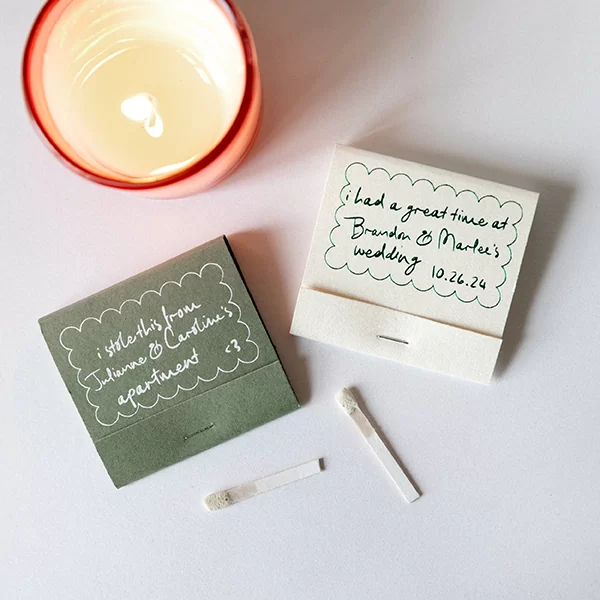 i had a great time at
Brandon & Marlee's
wedding 10.26.24
i stole this from
Julianne & Caroline's
apartment <3